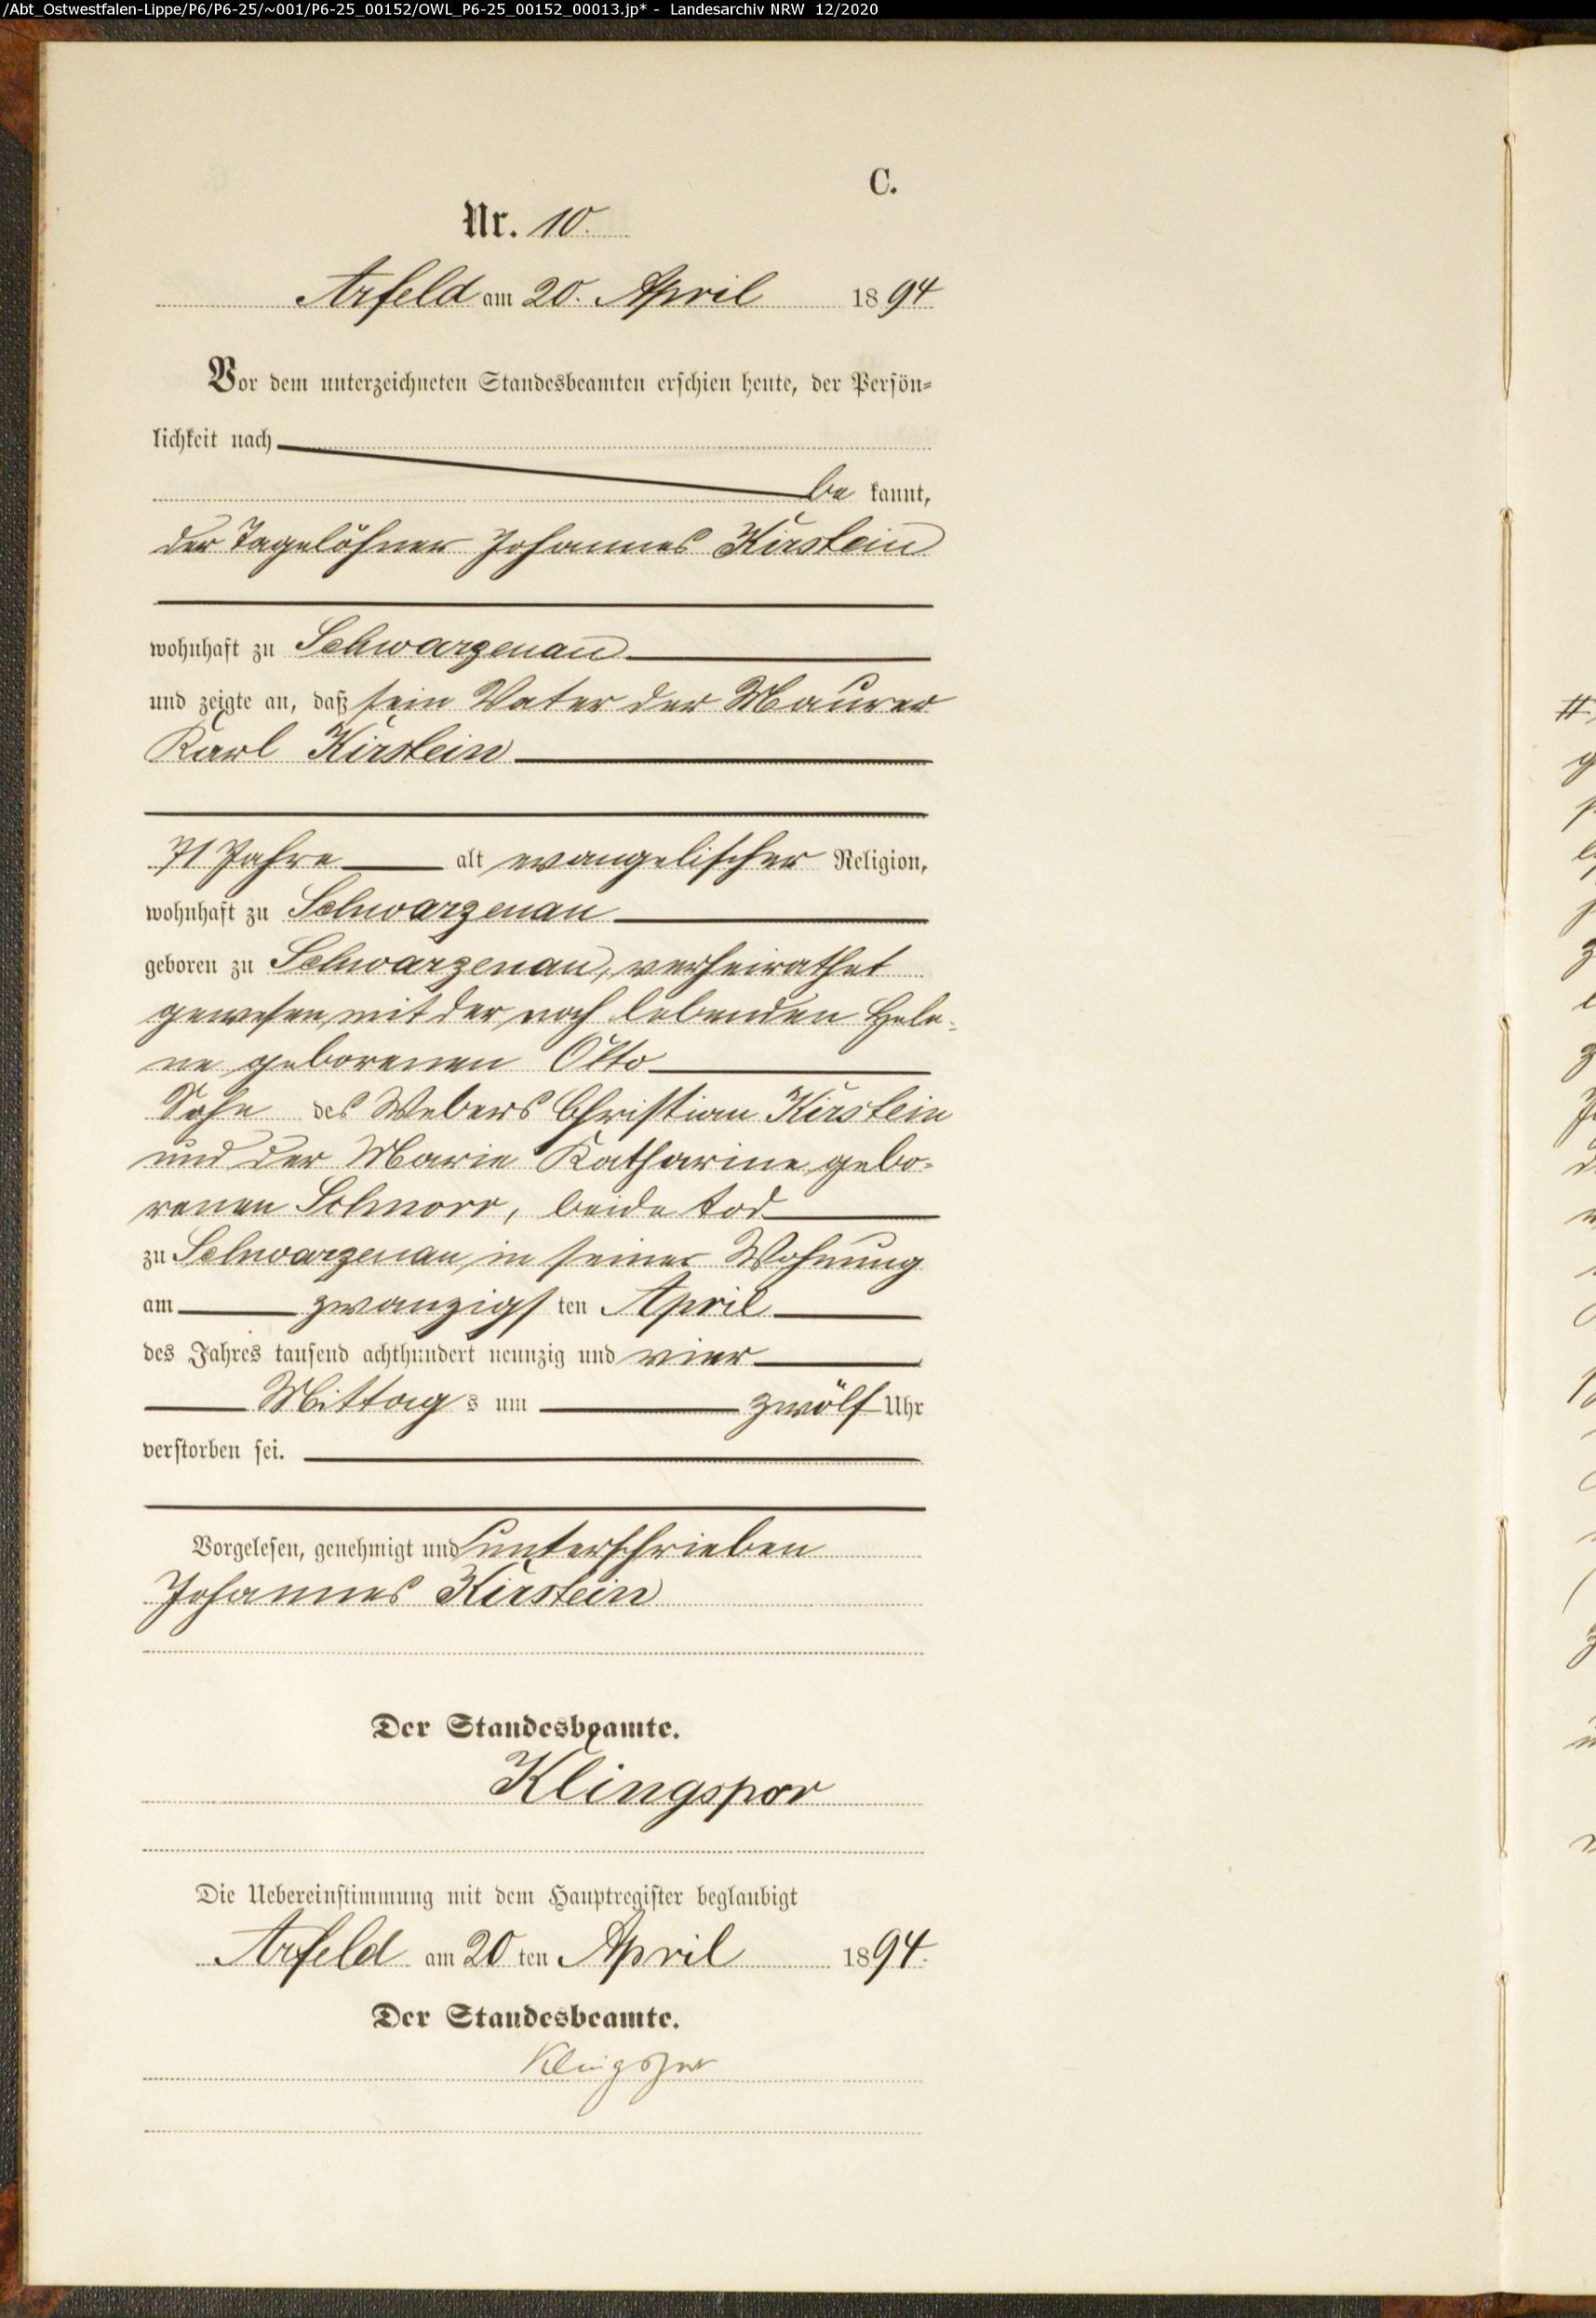 /Abt_Ostwestfalen-Lippe/P6/P6-25/~001/P6-25_00152/OWL_P6-25_00152_00013.jp* - Landesarchiv NRW 12/2020
C.
Nr. 10.
Arfeld am 20. April 1894
Vor dem unterzeichneten Standesbeamten erschien heute, der Persön=
lichkeit nach
be kannt,
der Tagelöhner Johannes Kirstein
wohnhaft zu Schwarzenau
und zeigte an, daß sein Vater der Maurer
Karl Kirstein
71 Jahre alt evangelischer Religion,
wohnhaft zu Schwarzenau
geboren zu Schwarzenau, verheirathet
gewesen mit der noch lebenden Hele-
ne geborenen Otto
Sohn des Webers Christian Kirstein
und der Marie Katharine gebo-
renen Schnorr, beide tod
zu Schwarzenau in seiner Wohnung
am zwanzigsten April
des Jahres tausend achthundert neunzig und vier
Mittags um zwölf Uhr
verstorben sei.
Vorgelesen, genehmigt und unterschrieben
Johannes Kirstein
Der Standesbeamte.
Klingspor
Die Uebereinstimmung mit dem Hauptregister beglaubigt
Arfeld am 20ten April 1894.
Der Standesbeamte.
Klingspor